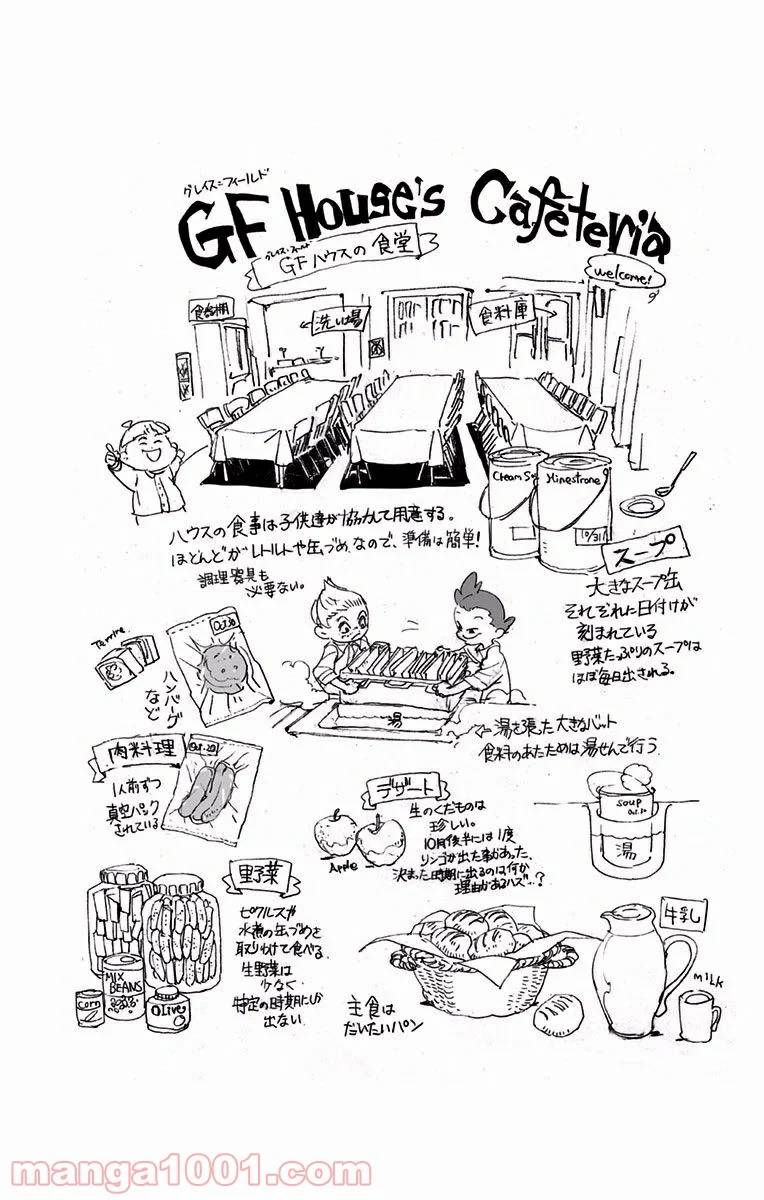 グレイス=フィールド
GF House's Cafeteria
グレイス=フィールド
GFハウスの食堂
welcome!
食器棚
←洗い場
食料庫
Cream S
Minestrone
10/31
スープ
ハウスの食事は子供達が協力して用意する。
ほとんどがレトルトや缶づめなので、準備は簡単!
調理器具も
必要ない。
大きなスープ缶
それぞれに日付けが
刻まれている
野菜たっぷりのスープは
ほぼ毎日出される。
Terrine
Oct.30
ハンバーグ
など
湯
←湯を張った大きなバット
食料のあたためは湯せんで行う
肉料理
Oct.20
1人前ずつ
真空パック
されている
デザート
生のくだものは
珍しい。
10月後半には1度
リンゴが出た事があった、
決まった時期に出るのは何か
理由があるハズ…?
Apple
soup
Oct.30
湯
野菜
ピクルスや
水煮の缶づめを
取りわけて食べる
生野菜は
少なく
特定の時期にしか
出ない
MIX
BEANS
Corn
Olive
主食は
だいたいパン
牛乳
MILK
manga1001.com